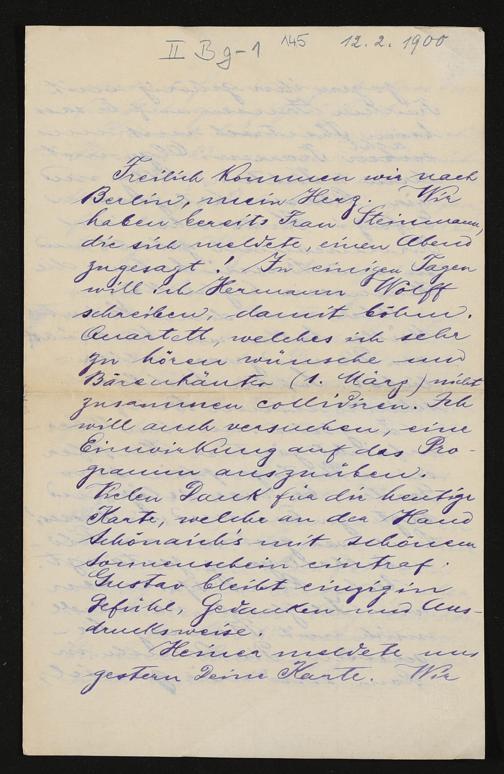 II Bg-1 145 12.2.1900
Freilich kommen wir nach
Berlin, mein Herz. Wir
haben bereits Frau Steinmann,
die sich meldete, einen Abend
zugesagt! In einigen Tagen
will ich Hermann Wolff
schreiben, damit böhm.
Quartett, welches ich sehr
zu hören wünsche und
Bärenhäuter (1. März) nicht
zusammen collidiren. Ich
will auch versuchen, eine
Einwirkung auf das Pro-
gramm auszuüben.
Vielen Dank für die heutige
Karte, welche an der Hand
Schönaich's mit schönem
Sonnenschein eintraf.
Gustav bleibt einzig in
Gefühl, Gedanken und Aus-
drucksweise.
Heiner meldete uns
gestern Deine Karte. Wir